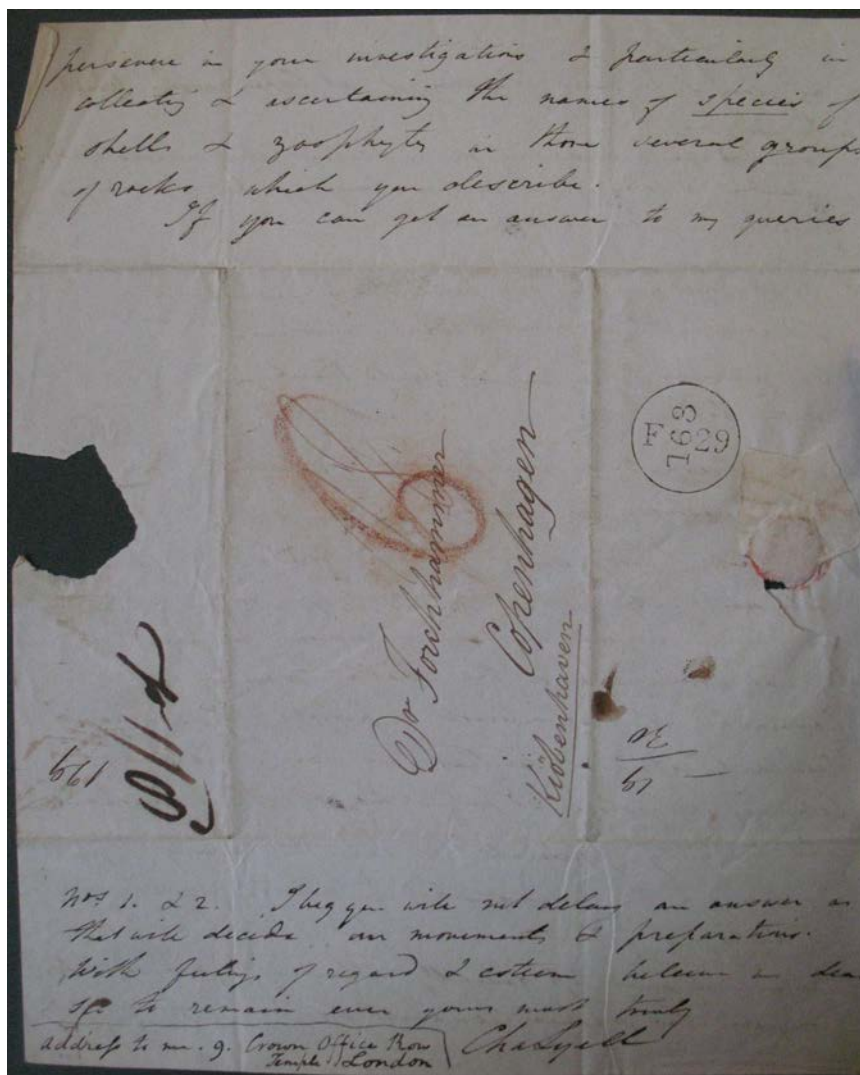 persevere in your investigations & particularly in
collecting & ascertaining the names of species of
shells & zoophytes in those several groups
of rocks which you describe.
If you can get an answer to my queries
F
168
29
Dr Forchhammer
Copenhagen
Kiöbenhaven
199
nos 1. & 2. I beg you will not delay an answer as
that will decide our movements & preparations.
With feelings of regard & esteem believe me dear
Sir to remain ever yours most truly
Cha Lyell
address to me. 9. Crown Office Row
Temple London